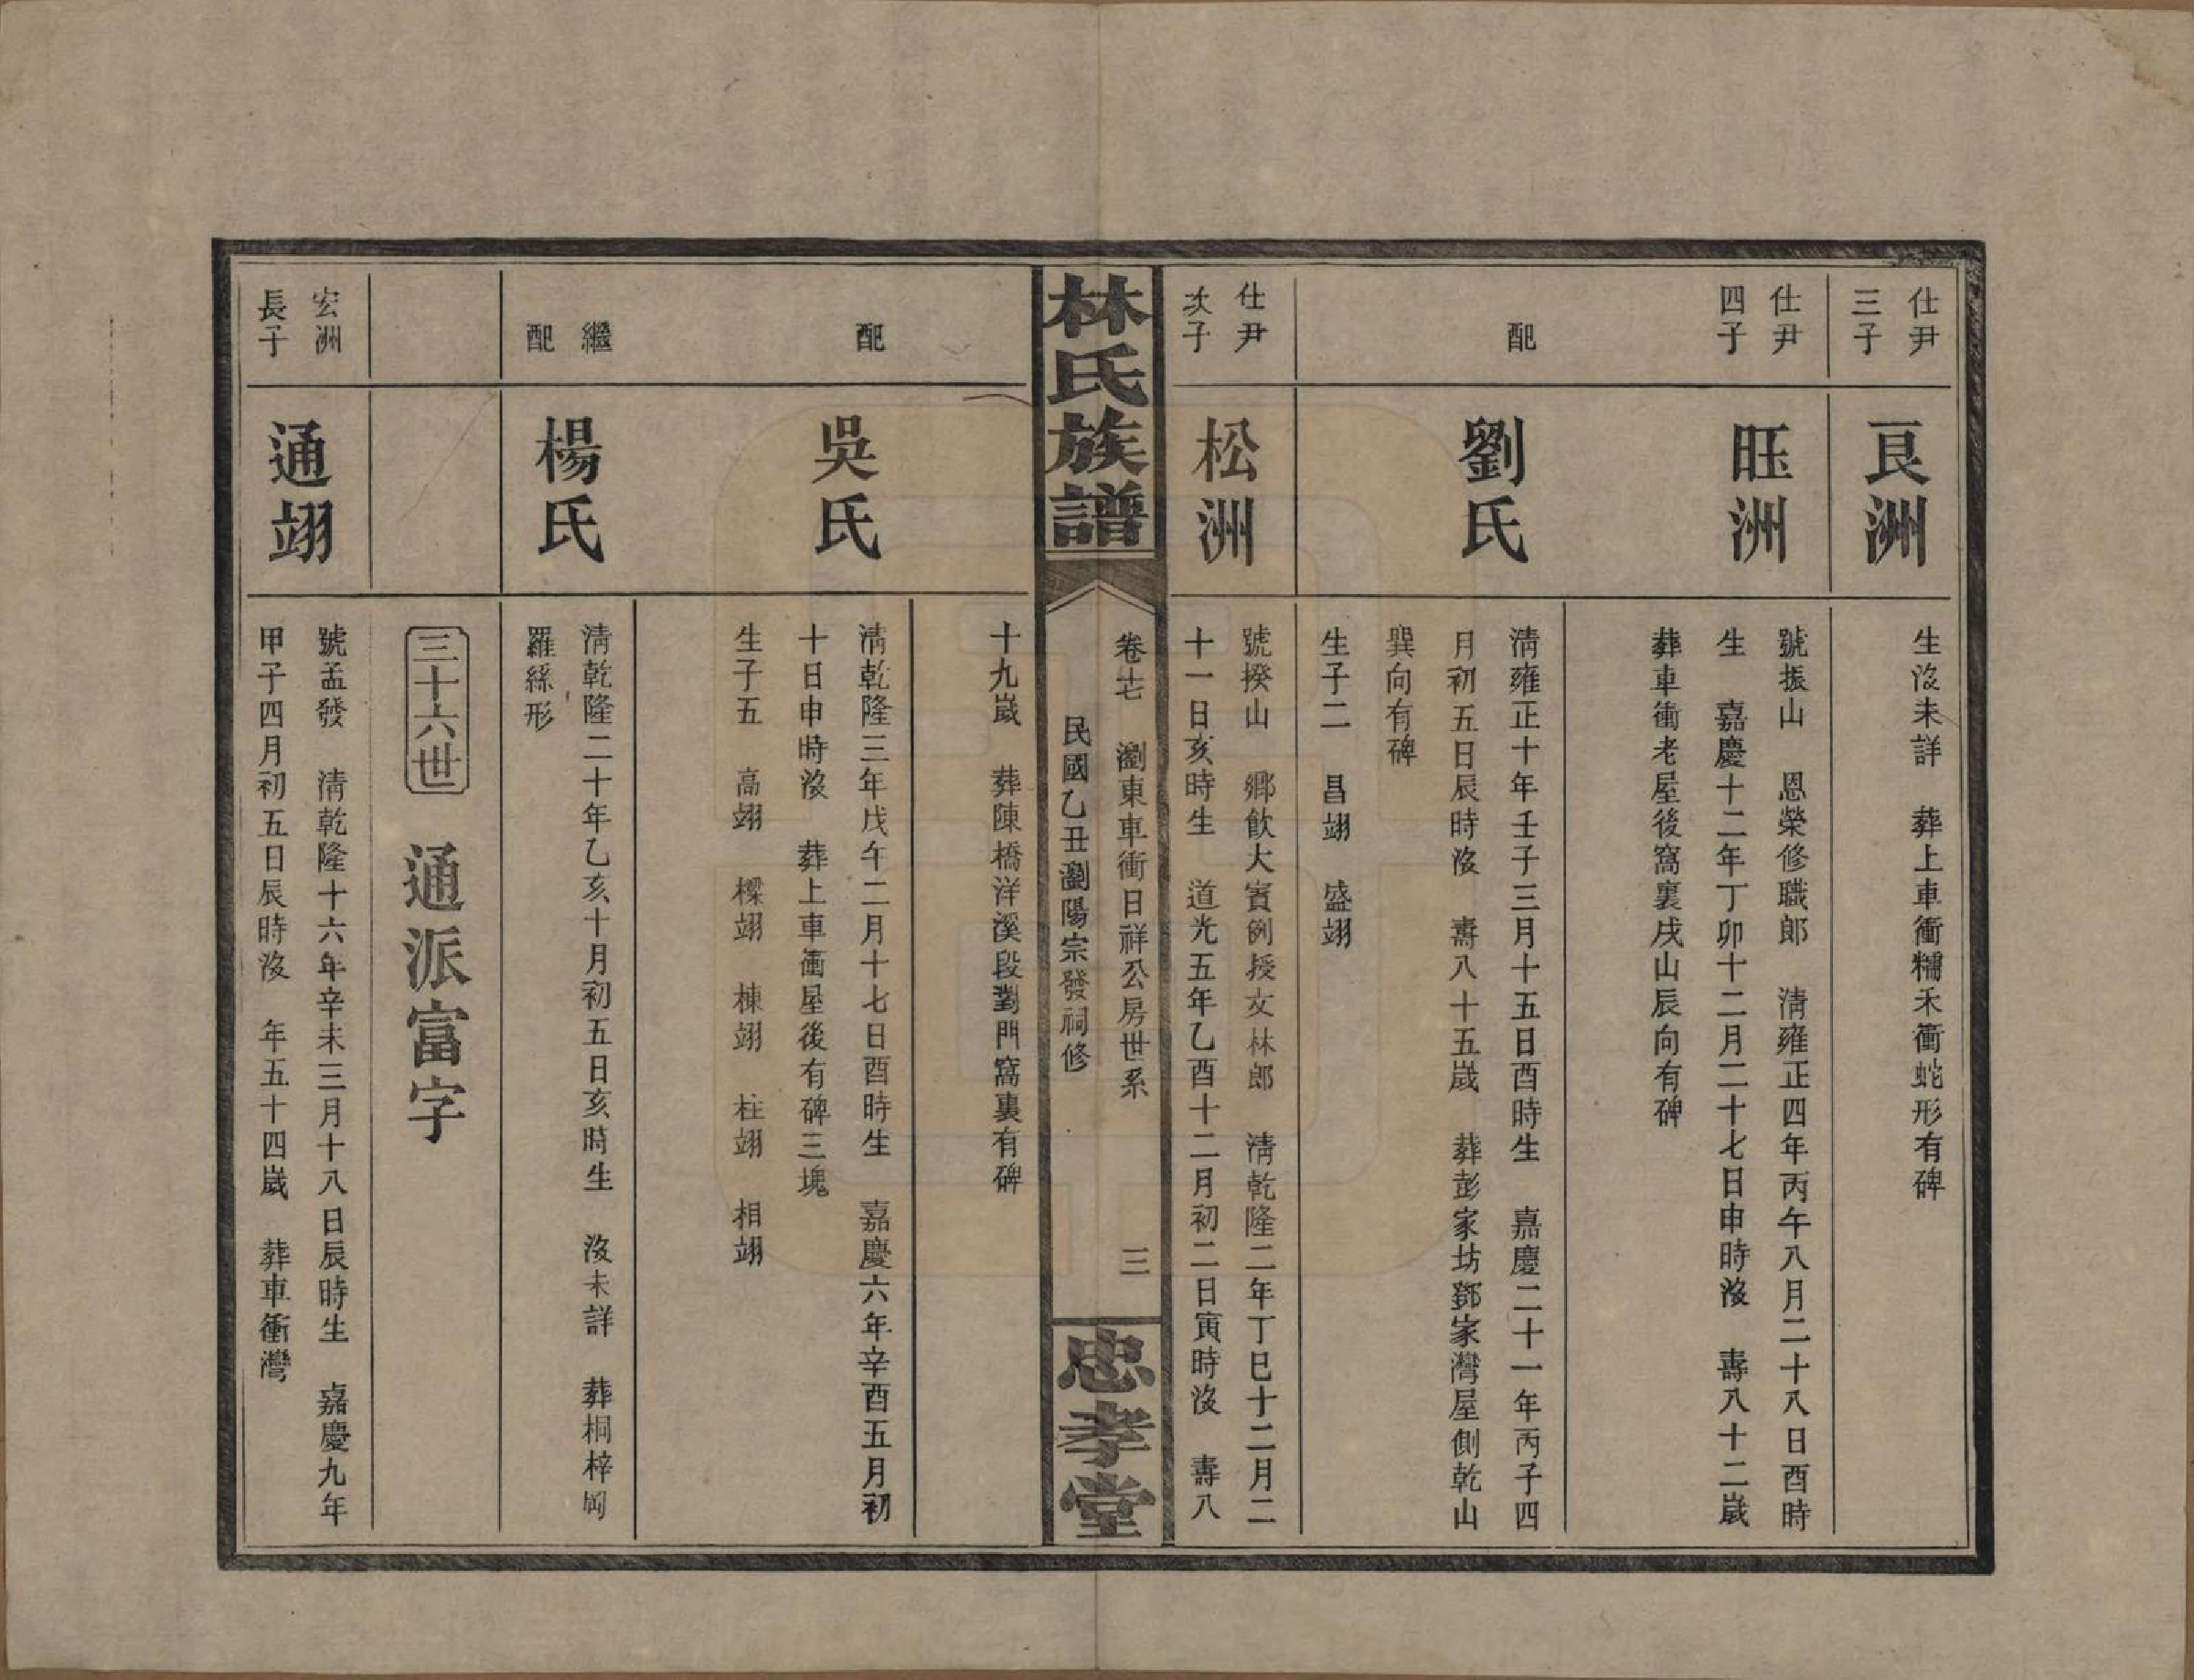 仕尹
三子
良洲
生沒未詳　葬上車衝糯禾衝蛇形有碑
仕尹
四子
旺洲
號振山　恩榮修職郎　清雍正四年丙午八月二十八日酉時
生　嘉慶十二年丁卯十二月二十七日申時沒　壽八十二歲
葬車衝老屋後窩裏戌山辰向有碑
配
劉氏
清雍正十年壬子三月十五日酉時生　嘉慶二十一年丙子四
月初五日辰時沒　壽八十五歲　葬彭家坊鄧家灣屋側乾山
巽向有碑
生子二　昌翊　盛翊
仕尹
次子
松洲
號揆山　鄉飲大賓例授文林郎　清乾隆二年丁巳十二月二
十一日亥時生　道光五年乙酉十二月初二日寅時沒　壽八
林氏族譜
卷十七　瀏東車衝日祥公房世系　三
民國乙丑瀏陽宗發祠修
忠孝堂
十九歲　葬陳橋洋溪段對門窩裏有碑
配
吳氏
清乾隆三年戊午二月十七日酉時生　嘉慶六年辛酉五月初
十日申時沒　葬上車衝屋後有碑三塊
生子五　高翊　樑翊　棟翊　柱翊　相翊
繼
配
楊氏
清乾隆二十年乙亥十月初五日亥時生　沒未詳　葬桐梓岡
羅絲形
三十六世　通派富字
宏洲
長子
通翊
號孟發　清乾隆十六年辛未三月十八日辰時生　嘉慶九年
甲子四月初五日辰時沒　年五十四歲　葬車衝灣